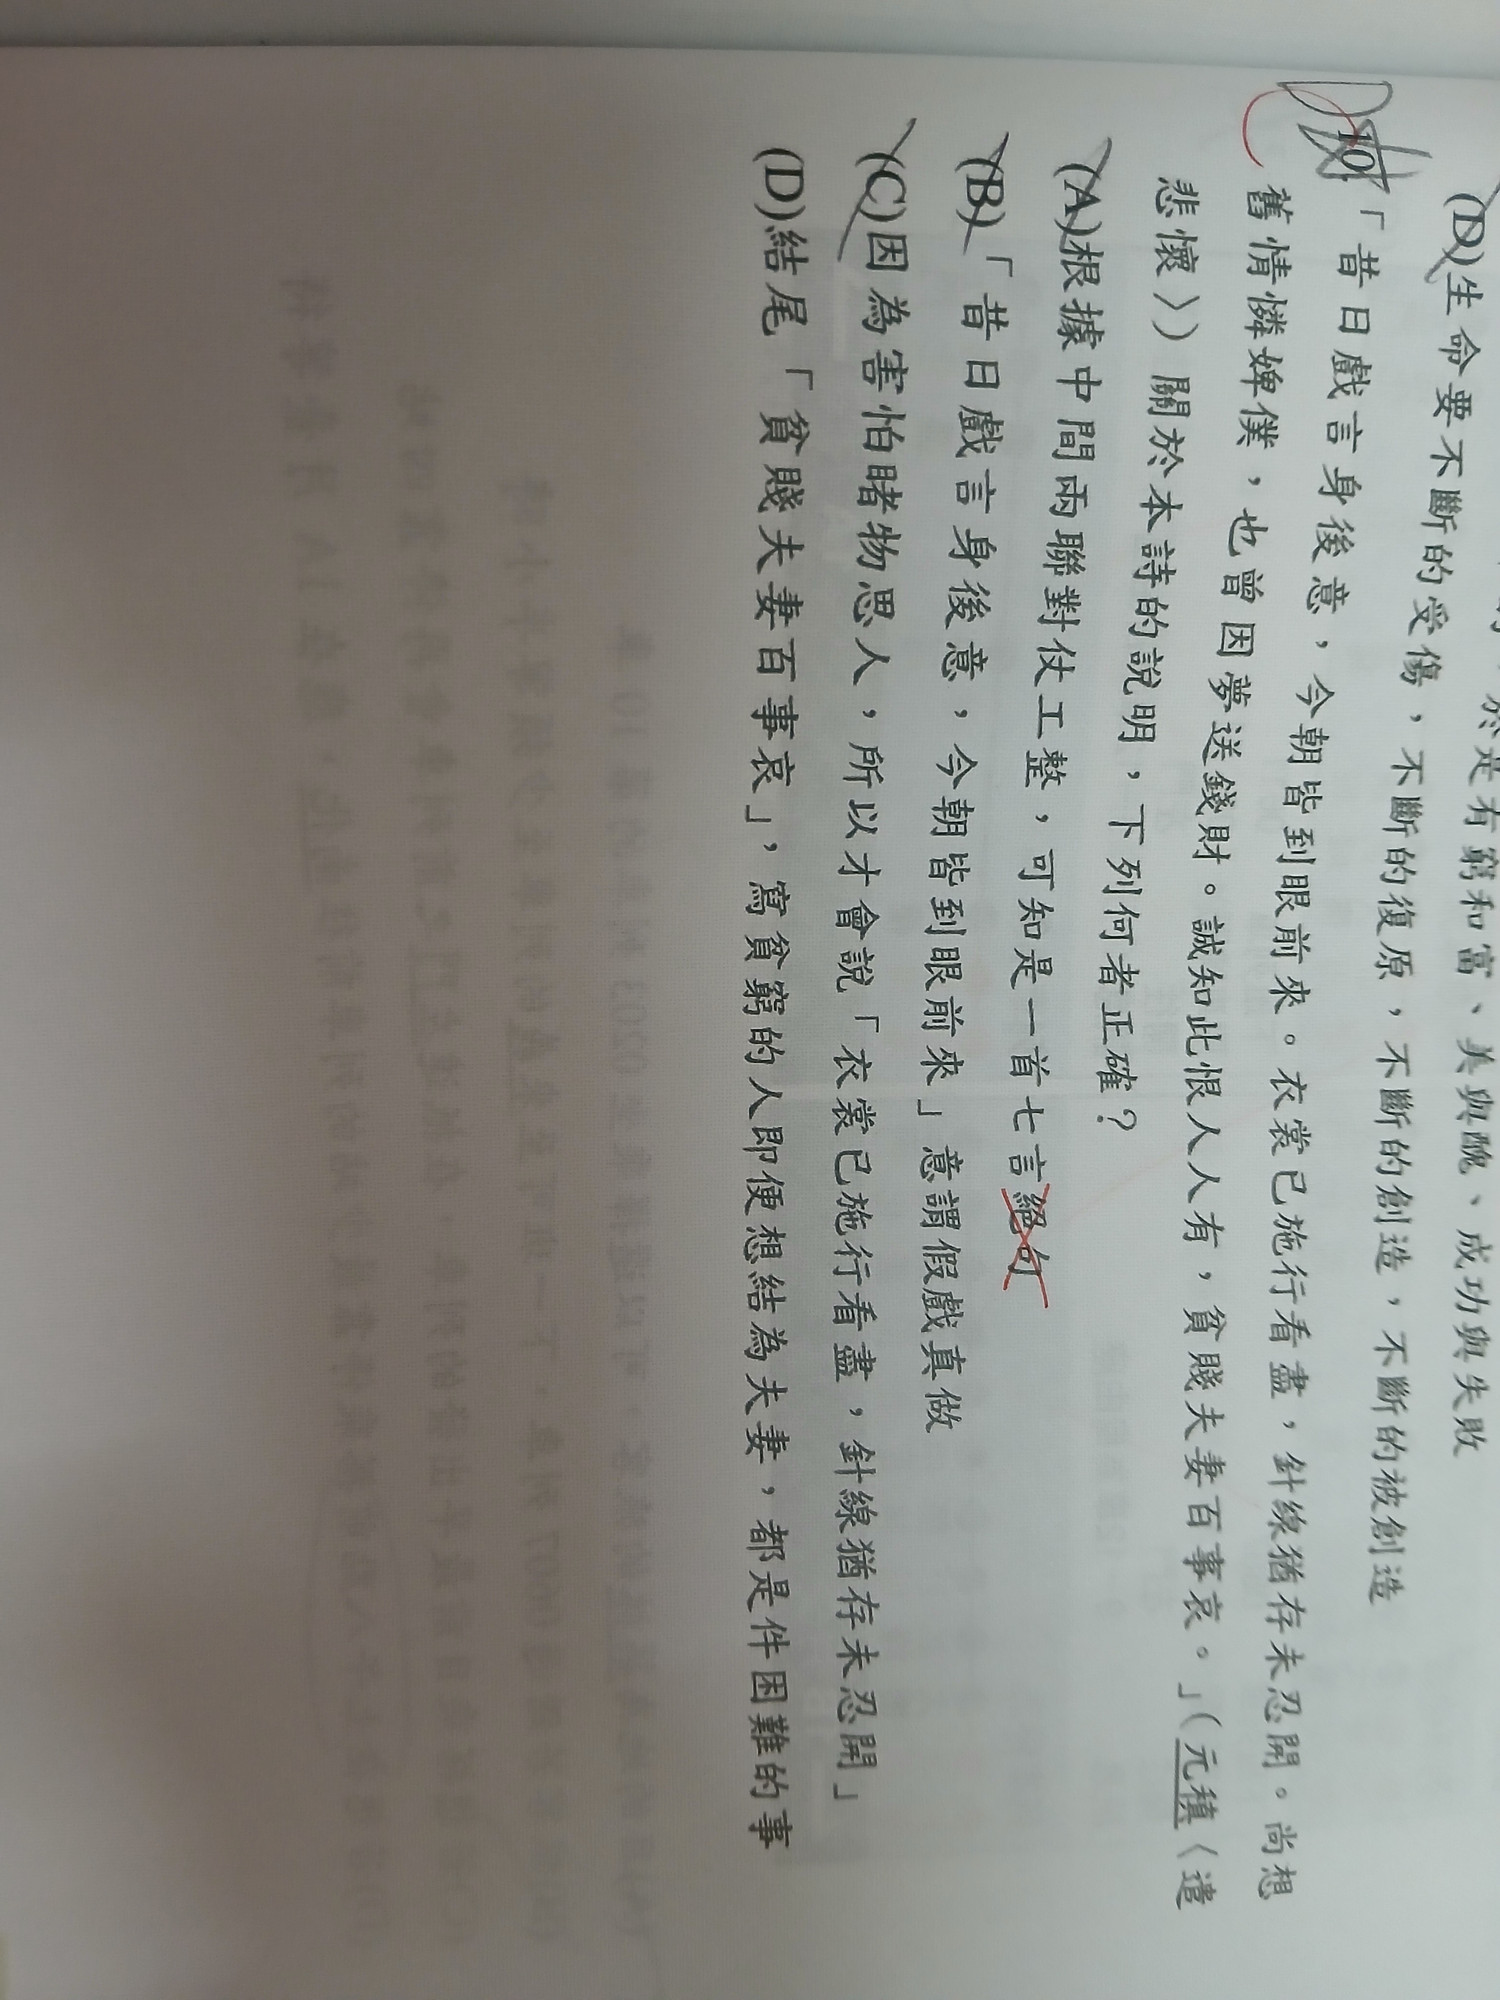 於是有窮和富、美與醜、成功與失敗
(D)生命要不斷的受傷，不斷的復原，不斷的創造，不斷的被創造
10.「昔日戲言身後意，今朝皆到眼前來。衣裳已施行看盡，針線猶存未忍開。尚想
舊情憐婢僕，也曾因夢送錢財。誠知此恨人人有，貧賤夫妻百事哀。」(元稹〈遣
悲懷〉)關於本詩的說明，下列何者正確？
(A)根據中間兩聯對仗工整，可知是一首七言絕句
(B)「昔日戲言身後意，今朝皆到眼前來」意謂假戲真做
(C)因為害怕睹物思人，所以才會說「衣裳已施行看盡，針線猶存未忍開」
(D)結尾「貧賤夫妻百事哀」，寫貧窮的人即便想結為夫妻，都是件困難的事